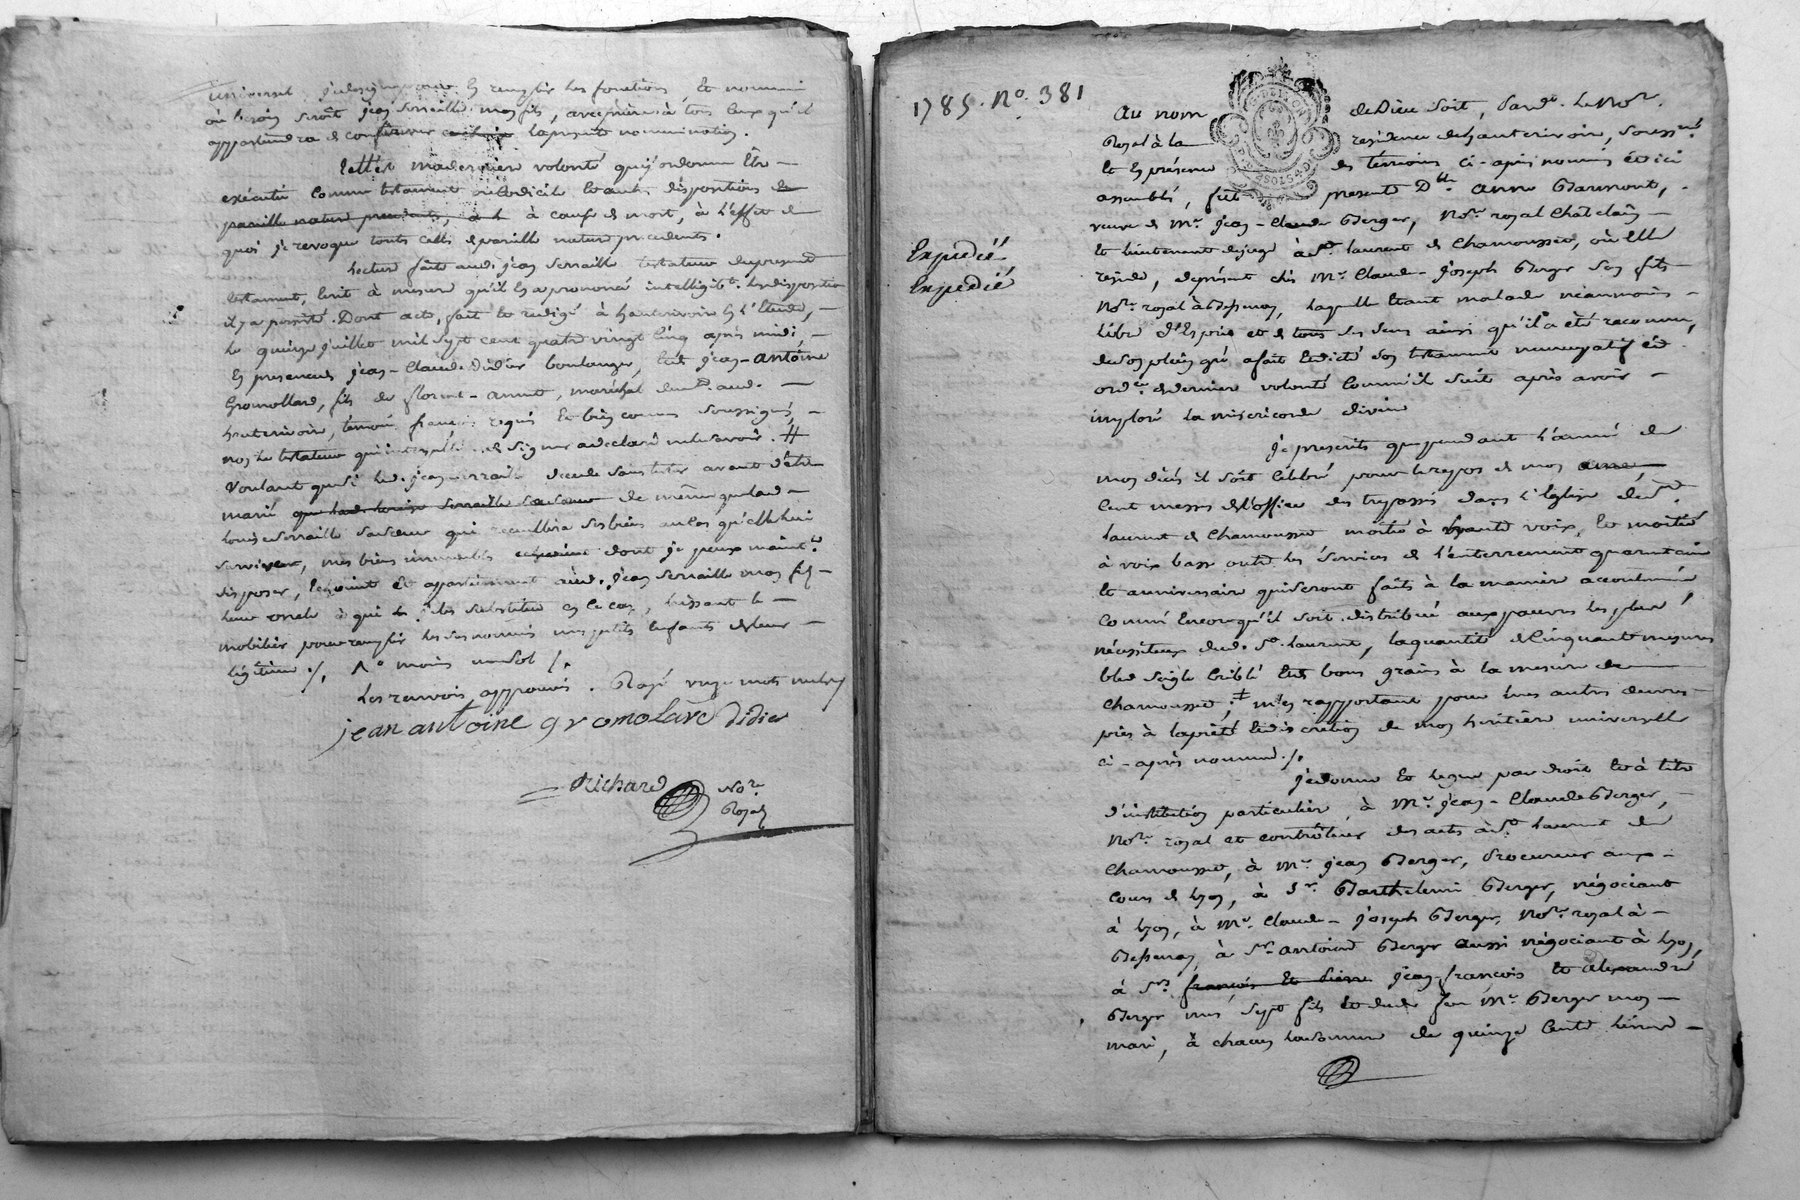 universel, pour en remplir les fonctions et nommer
où besoin seroit jean serraille mon fils, avec prière à tous ceux qu'il
appartiendra de confirmer la présente nomination.
Telle est ma dernière volonté que j'ordonne être
exécutée comme testament ou codicile et autres dispositions de
pareille nature à cause de mort, à l'effet de
quoi je revoque toutes celles de pareille nature précédents.
Lecture faite aud. jean serraille testateur du présent
testament, écrit à mesure qu'il en a prononcé intelligibt. les dispositions
il y a persisté. Dont acte, fait et redigé à hauterivoire en l'Etude,
le quinze juillet mil sept cent quatre vingt cinq après midi,
En presence de jean-Claude Didier boulanger, et de jean-antoine
Gromollard, fils de maréchal aud.
hauterivoire, témoins requis et bien connus soussignés,
non le testateur qui de signer a declaré ne le savoir. #
Voulant que si led. jean serraille decede sans tester avant d'être
marié de même que lad.
louise serraille sa soeur qui recueillira ses biens au cas qu'elle lui
survive, mes biens immeubles dont je peux maint.
disposer, et appartiennent aud. jean serraille mon fils
leur oncle à qui je les substitue en ce cas, laissant le
mobilier pour remplir les susnommés mes petits enfants de leur
légitime ./. moins un sol ./.
Les renvois approuvés. Rayé onze mots nuls
jean antoine gromolard didier
Richard Nore.
Royal
1785. No. 381
Expedié
Expedié
Au nom de Dieu soit, pard. le Nore.
Royal à la residence de hauterivoire, soussigné
et En présence des témoins ci-après nommés et ici
assemblés, fut presente Dlle. anne Barmont,
veuve de Mr. jean-Claude Berger, Nore. royal Châtelain
et lieutenant de juge à St. laurent de Chamousset, où Elle
reside, de présent chés Mr. Claude-joseph Berger son fils
Nore. royal à Bessenay, laquelle étant malade néanmoins
libre d'Esprit et de tous ses sens ainsi qu'il a été reconnu,
de son plein gré a fait et dicté son testament nuncupatif et
ordre. de derniere volonté comm'il suit après avoir
imploré la misericorde divine
Je prescrits que pendant l'année de
mon dècés il soit célébré pour le repos de mon ame,
cent messes de l'office des trepassés dans l'Eglise de St.
laurent de Chamousset moitié à haute voix, et moitié
à voix basse outre les services de l'enterrement quarantaine
et anniversaire qui seront faits à la maniere accoutumée
comme encore qu'il soit distribué aux pauvres les plus
nécéssiteux dud. St. laurent, la quantité de Cinquante mesures
bled seigle criblé et de bons grains à la mesure de
Chamousset; m'en rapportant pour mes autres oeuvres
pies à la piété et discrétion de mon heritière universelle
ci-après nommée ./.
Je donne et legue par droit et à titre
d'institution particuliere, à Mr. jean-Claude Berger,
Nore. royal et contrôleur des actes à St. laurent de
Chamousset, à Mr. jean Berger, Procureur aux
Cours de lyon, à Sr. Barthelemi Berger, négociant
à lyon, à Mr. Claude-joseph Berger, Nore. royal à
Bessenay, à Sr. antoine Berger aussi négociant à lyon,
à Srs. françois et Pierre jean-françois et alexandre
Berger mes sept fils et dud. feu Mr. Berger mon
mari, à chacun la somme de quinze cents livres